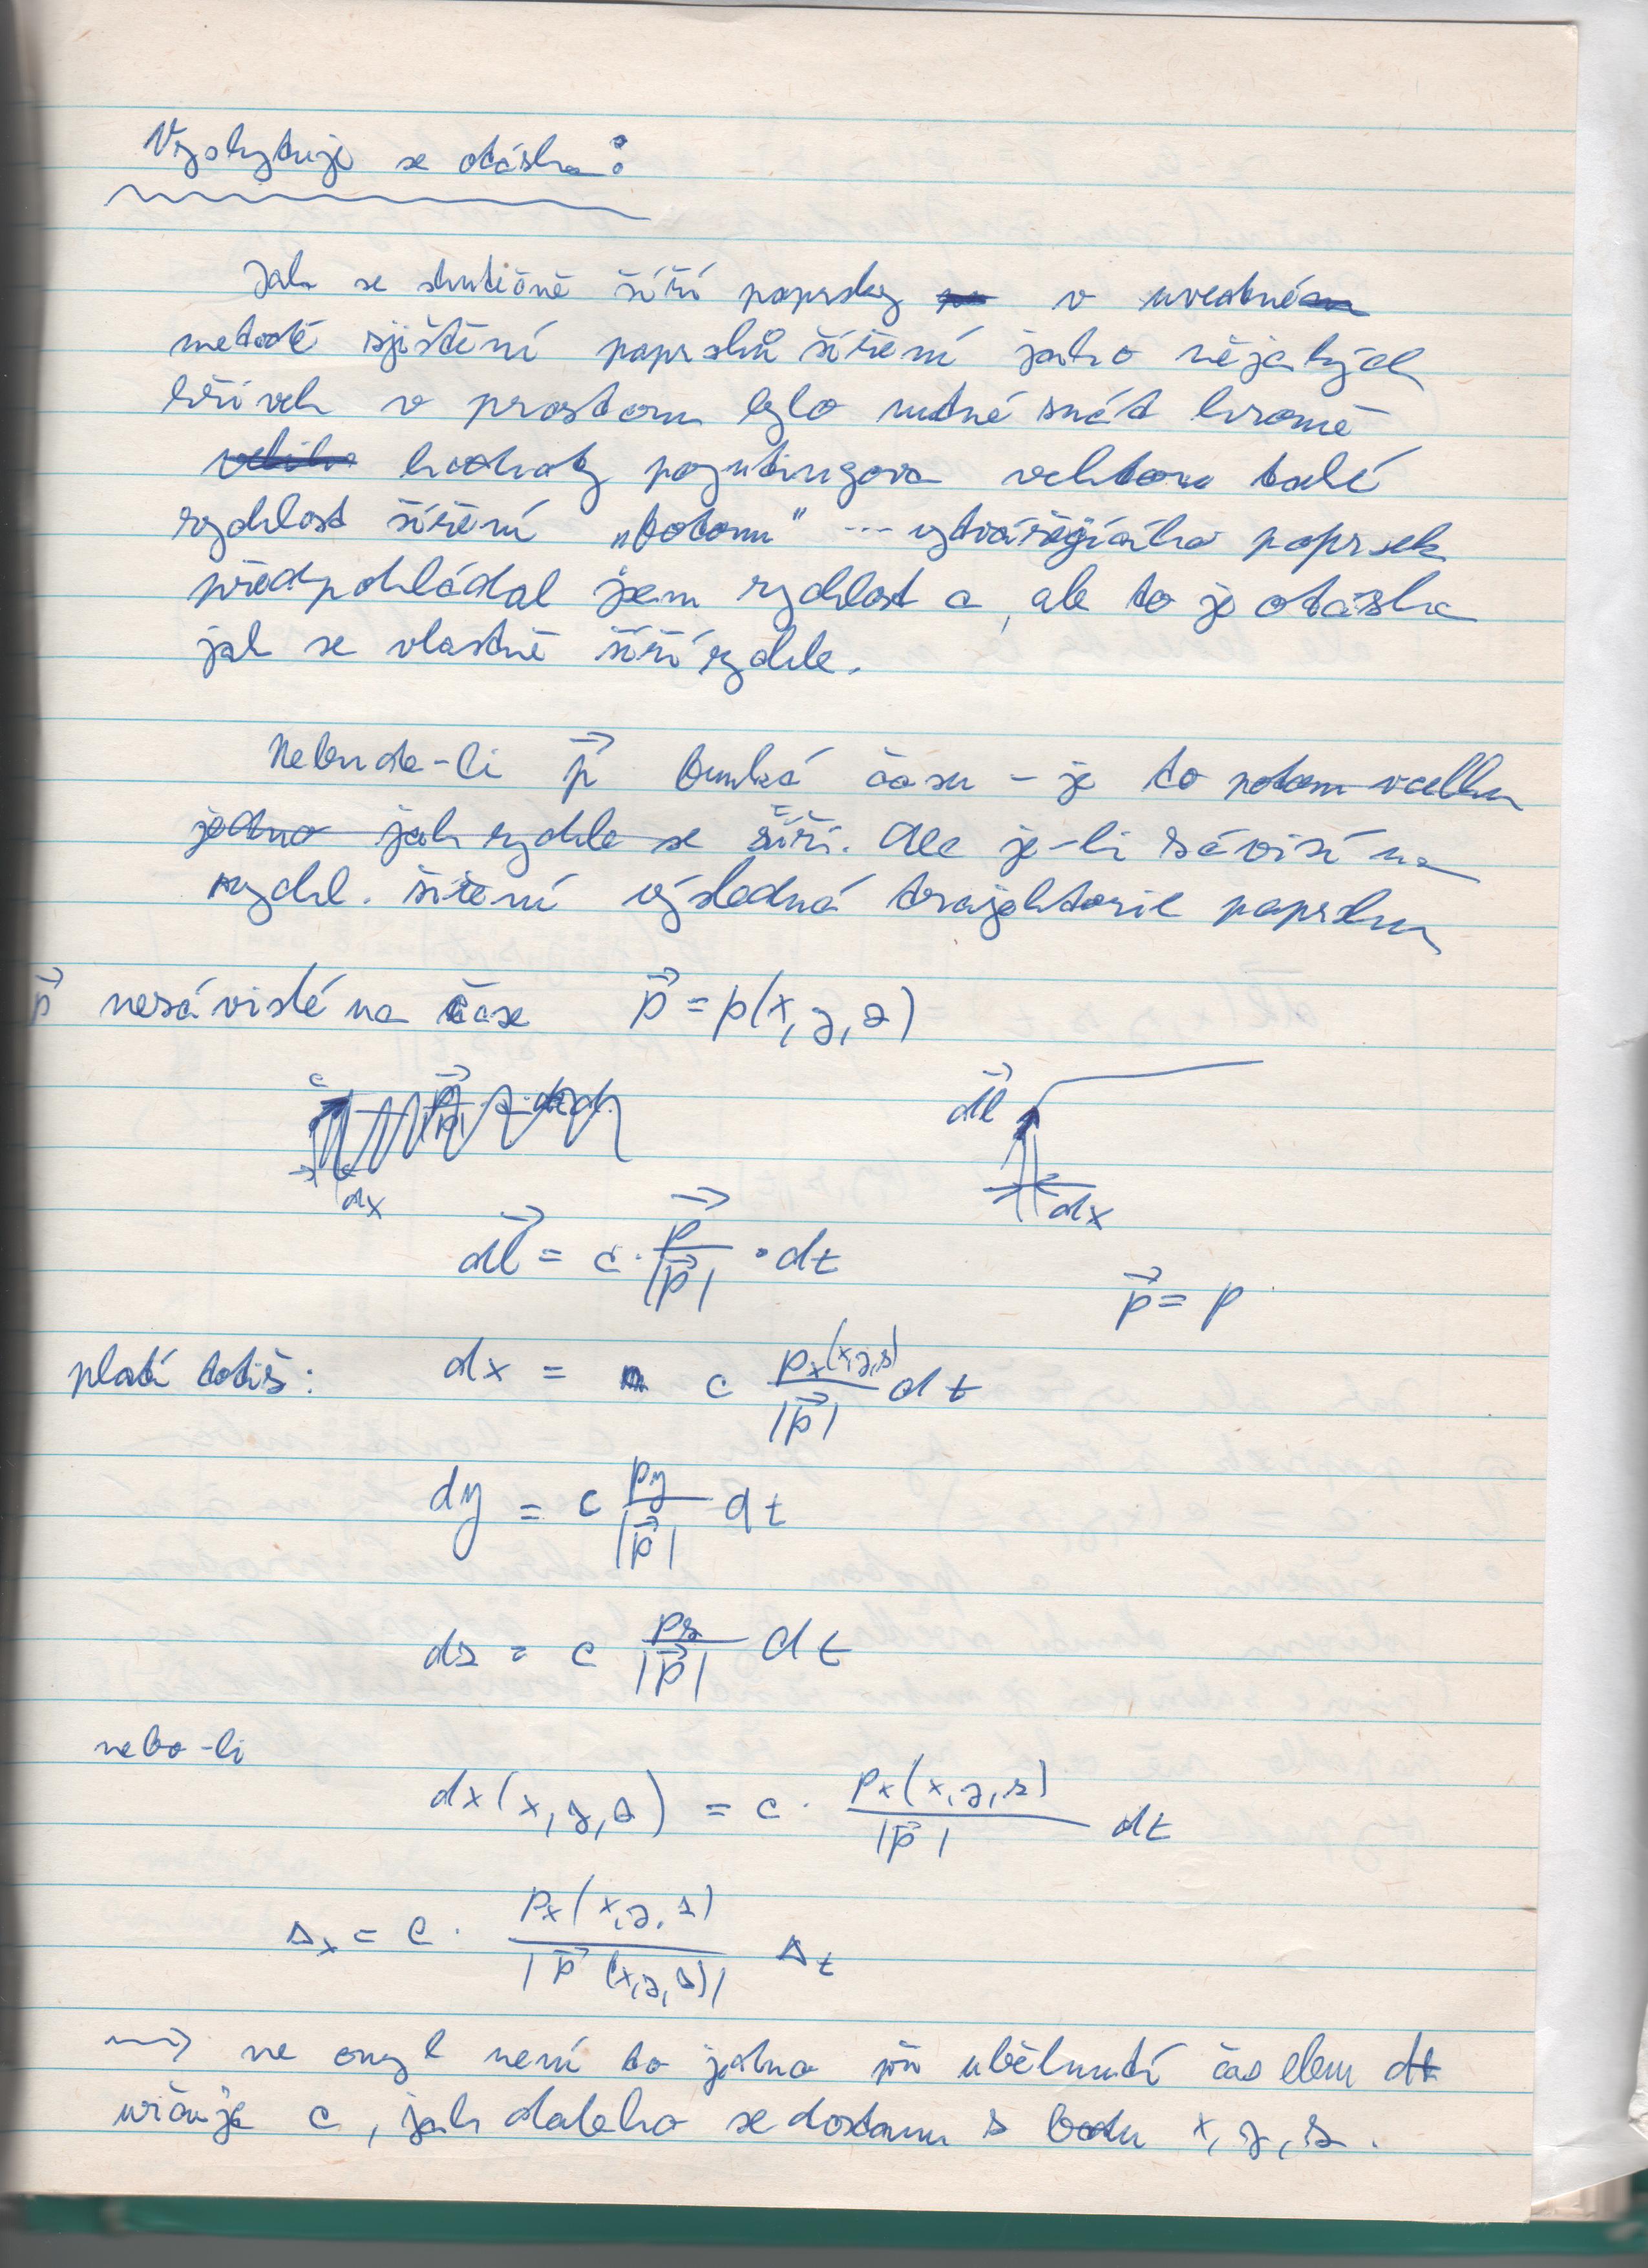 Vyskytuje se otázka:
Jak se skutečně šíří paprsky v uvedené
metodě zjištění paprsků šíření jako nějakých
křivek v prostoru bylo nutné znát kromě
hodnoty poyntingova vektoru také
rychlost šíření „fotonu" --- vytvářejícího paprsek
předpokládal jsem rychlost c, ale to je otázka
jak se vlastně šíří rychle.
Nebude-li p⃗ funkcí času - je to potom vcelku
jedno jak rychle se šíří. Ale je-li závisí na
rychl. šíření výsledná trajektorie paprsku
p⃗ nezávislé na čase p⃗ = p(x, y, z)
dl⃗
dx dx
dl⃗ = c · p⃗/|p⃗| · dt
p⃗ = p
platí totiž: dx = c px(x,y,z)/|p⃗| dt
dy = c py/|p⃗| dt
dz = c pz/|p⃗| dt
nebo-li
dx(x, y, z) = c · px(x, y, z)/|p⃗| dt
Δx = c · px(x, y, z)/|p⃗(x, y, z)| Δt
⟿ ne omyl není to jedno při uběhnutí čas elem dt
určuje c, jak daleko se dostanu z bodu x, y, z.